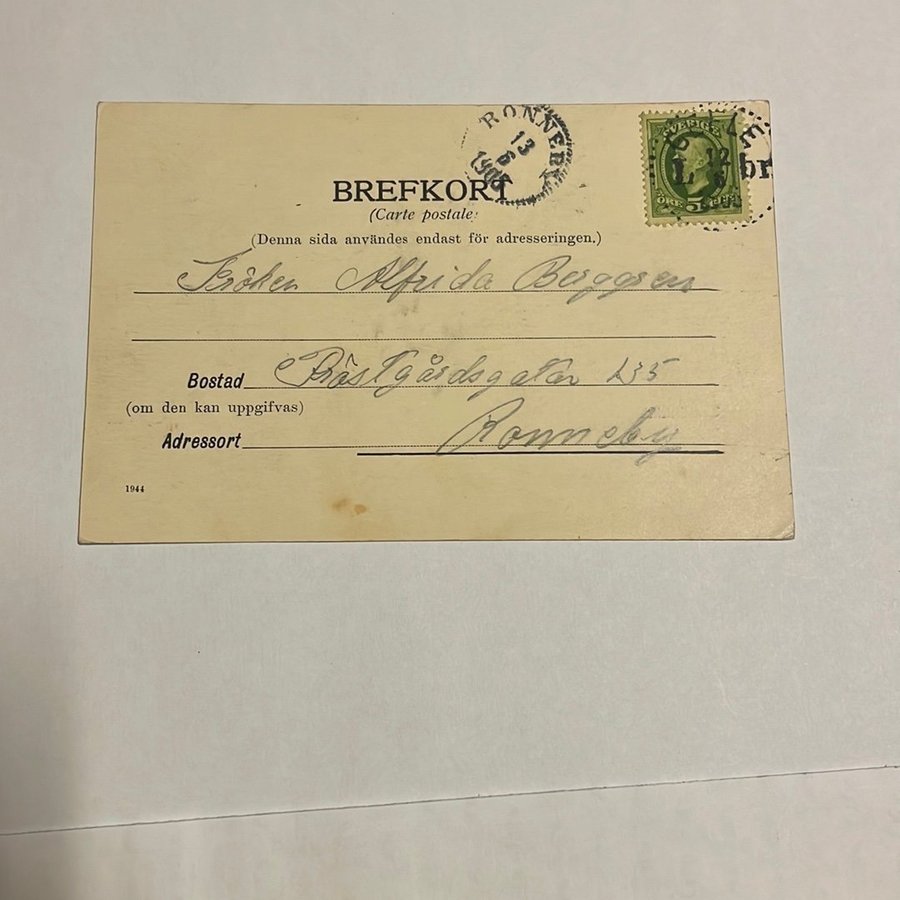 RONNEBY
13
6
1905
SVERIGE
12
6
ÖRE 5 ÖRE
BREFKORT
(Carte postale)
(Denna sida användes endast för adresseringen.)
Fröken Alfrida Berggren
Bostad Prästgårdsgatan 235
(om den kan uppgifvas)
Adressort Ronneby
1944